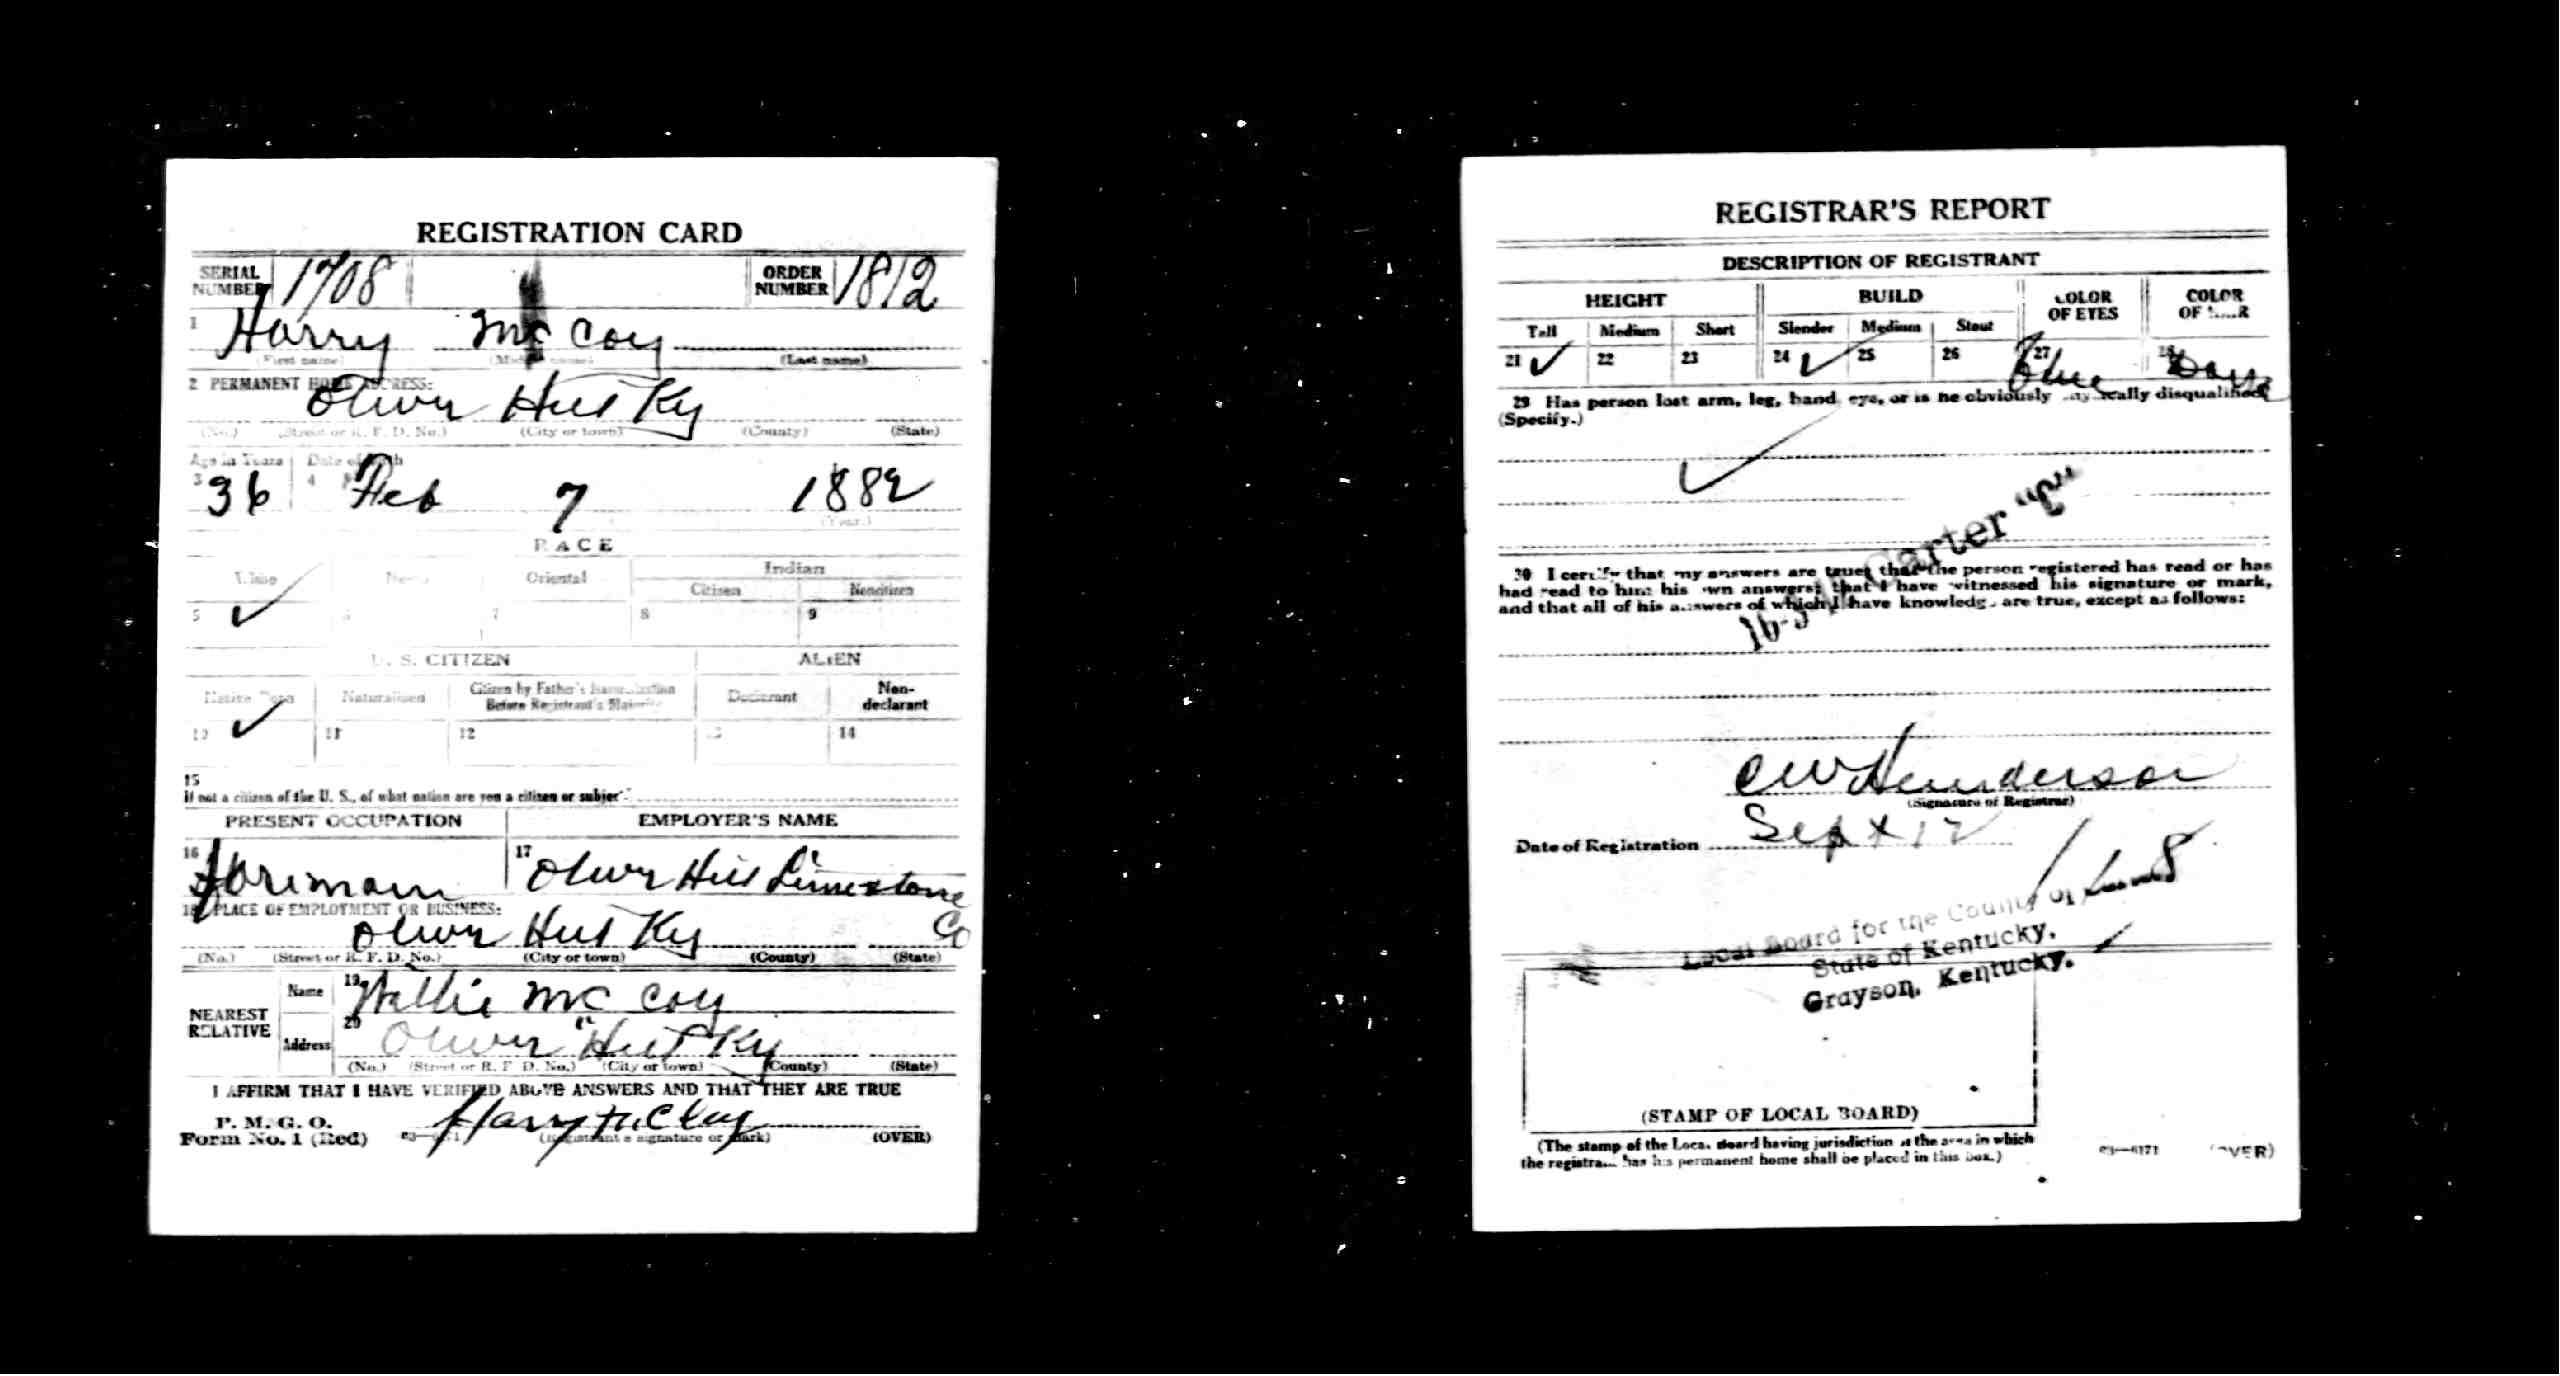 REGISTRATION CARD
SERIAL NUMBER 1708 ORDER NUMBER 1812
1 Harry McCoy
(First name) (Middle name) (Last name)
2 PERMANENT HOME ADDRESS:
Olive Hill Ky
(No.) (Street or R. F. D. No.) (City or town) (County) (State)
Age in Years Date of Birth
3 36 4 Feb 7 1882
(Year.)
RACE
White Negro Oriental Indian
Citizen Noncitizen
5 ✓ 6 7 8 9
U. S. CITIZEN ALIEN
Native Born Naturalized Citizen by Father's Naturalization Before Registrant's Majority Declarant Non-declarant
10 ✓ 11 12 13 14
15
If not a citizen of the U. S., of what nation are you a citizen or subject?
PRESENT OCCUPATION EMPLOYER'S NAME
16 Foreman 17 Olive Hill Limestone Co
18 PLACE OF EMPLOYMENT OR BUSINESS:
Olive Hill Ky
(No.) (Street or R. F. D. No.) (City or town) (County) (State)
NEAREST RELATIVE Name 19 McCoy
Address 20 Olive Hill Ky
(No.) (Street or R. F. D. No.) (City or town) (County) (State)
I AFFIRM THAT I HAVE VERIFIED ABOVE ANSWERS AND THAT THEY ARE TRUE
P. M. G. O.
Form No. 1 (Red) Harry McCoy
(Registrant's signature or mark) (OVER)
REGISTRAR'S REPORT
DESCRIPTION OF REGISTRANT
HEIGHT BUILD COLOR OF EYES COLOR OF HAIR
Tall Medium Short Slender Medium Stout
21 ✓ 22 23 24 ✓ 25 26 27 Blue 28
29 Has person lost arm, leg, hand, eye, or is he obviously physically disqualified?
(Specify.)
✓
Carter "C"
30 I certify that my answers are true; that the person registered has read or has
had read to him his own answers; that I have witnessed his signature or mark,
and that all of his answers of which I have knowledge are true, except as follows:
C W Henderson
(Signature of Registrar)
Date of Registration Sept 12 1918
Local Board for the County of
State of Kentucky,
Grayson, Kentucky.
(STAMP OF LOCAL BOARD)
(The stamp of the Local Board having jurisdiction of the area in which
the registrant has his permanent home shall be placed in this box.)
03—6171 (OVER)